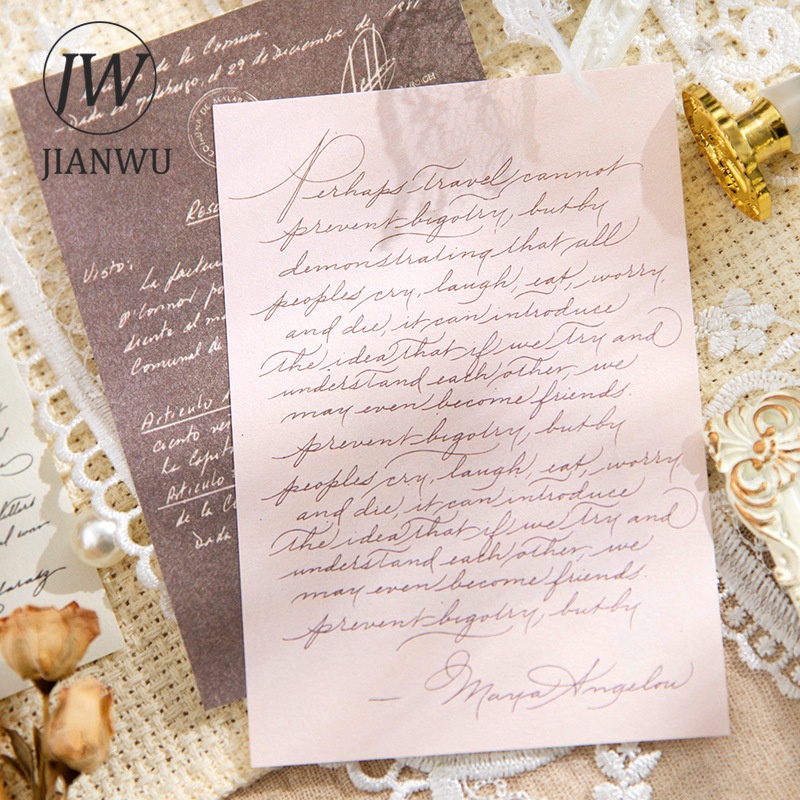 JW
JIANWU
de la Comuna.
el 29 de Diciembre de
Visto:
La
Comunal de
Articulo
Articulo
de la
Dada
Perhaps Travel cannot
prevent bigotry, but by
demonstrating that all
peoples cry, laugh, eat, worry,
and die, it can introduce
the idea that if we try and
understand each other, we
may even become friends.
prevent bigotry, but by
peoples cry, laugh, eat, worry,
and die, it can introduce
the idea that if we try and
understand each other, we
may even become friends.
prevent bigotry, but by
— Maya Angelou